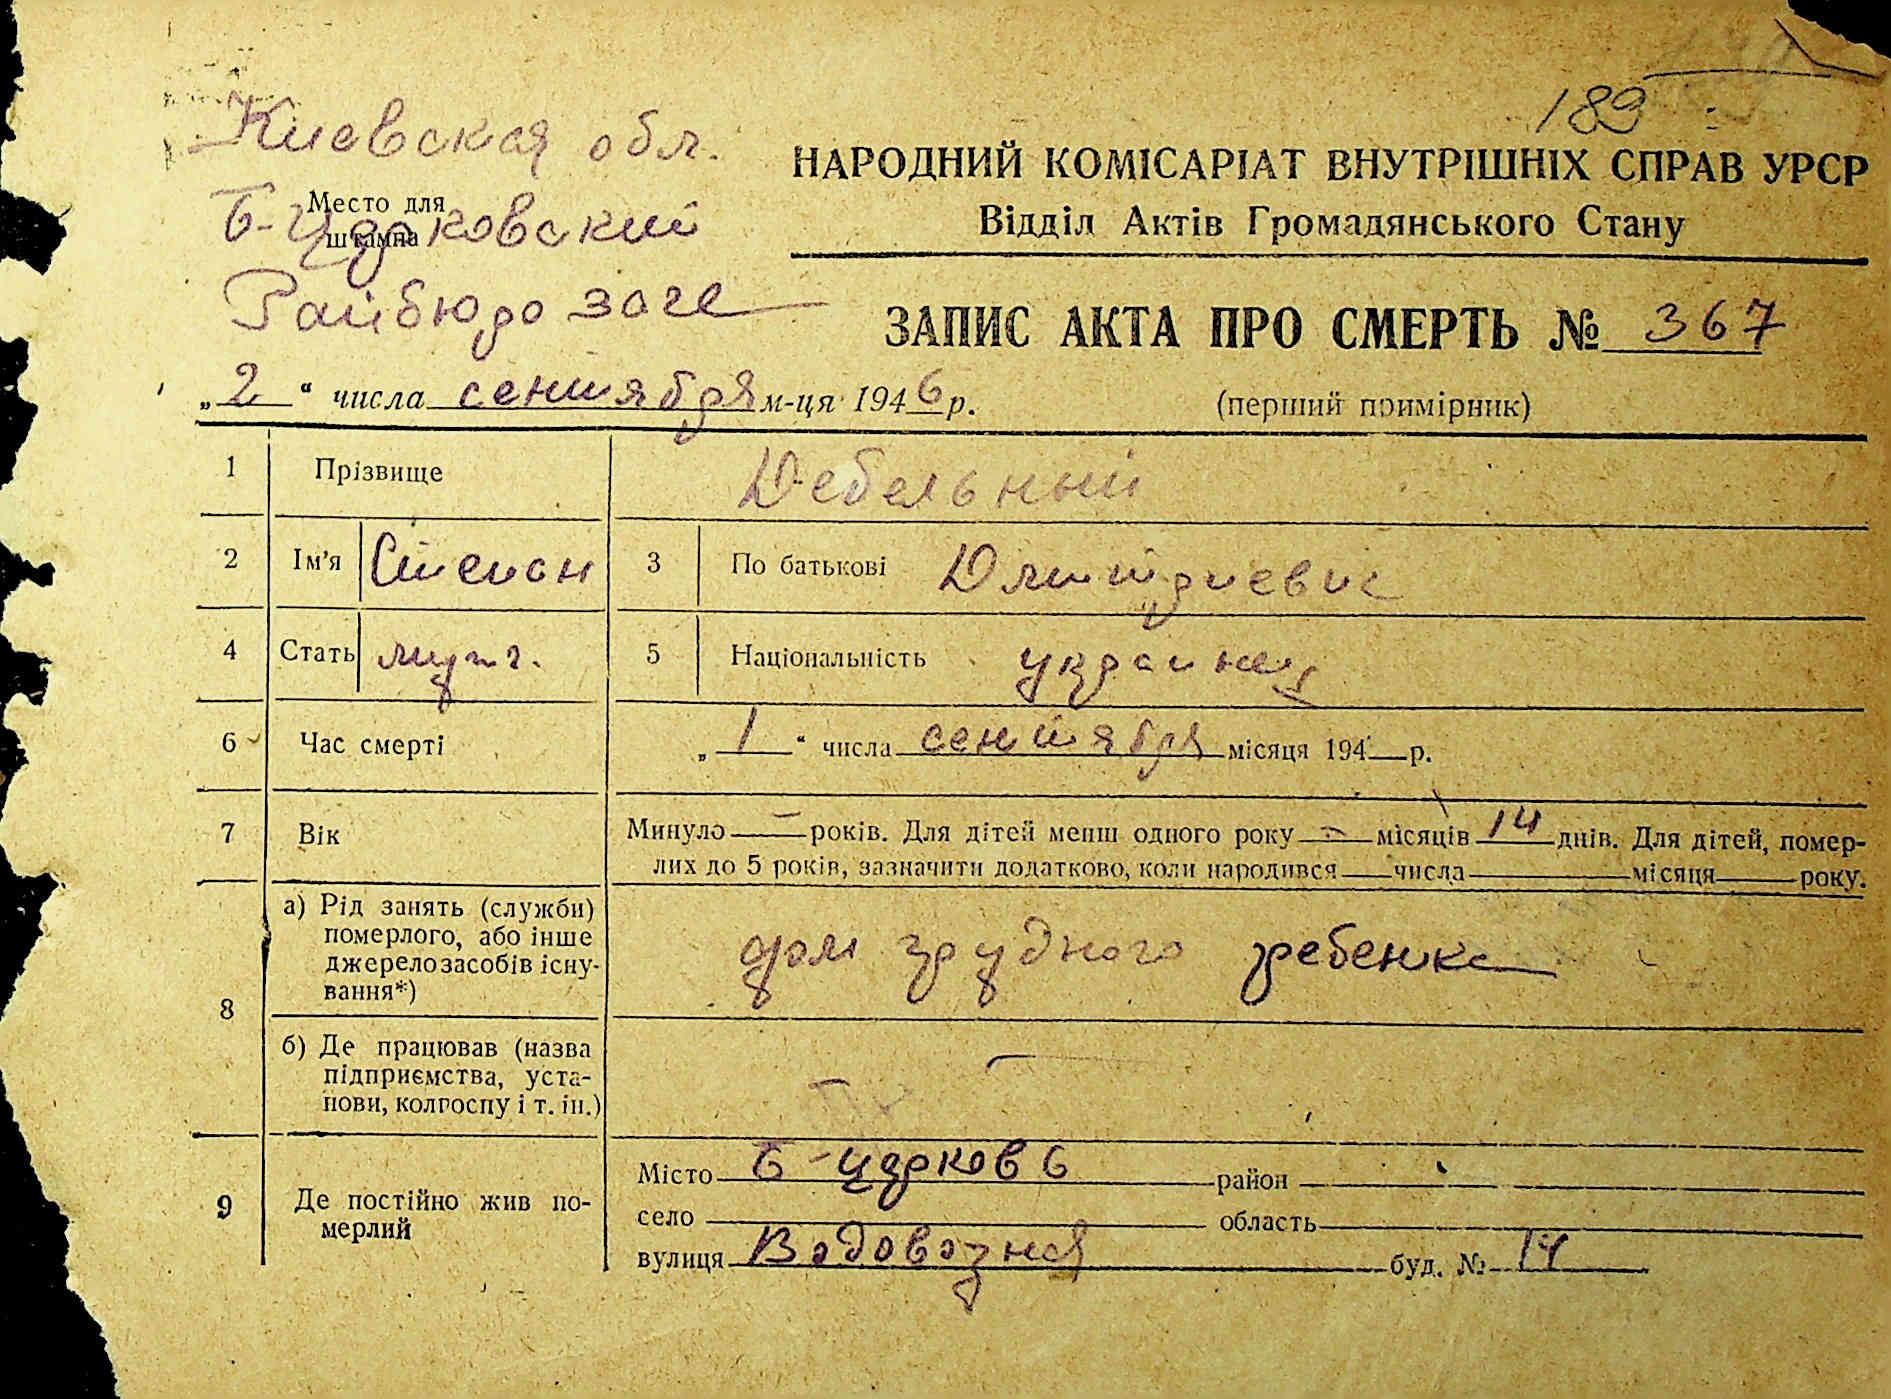 189
Киевская обл.
НАРОДНИЙ КОМІСАРІАТ ВНУТРІШНІХ СПРАВ УРСР
Место для
штампа
Б-Церковский
Відділ Актів Громадянського Стану
Райбюро загс
ЗАПИС АКТА ПРО СМЕРТЬ № 367
„2“ числа сентября м-ця 1946 р.
(перший примірник)
1 Прізвище Дебельный
2 Ім'я Степан 3 По батькові Дмитриевич
4 Стать муж. 5 Національність украинец
6 Час смерті „1“ числа сентября місяця 194 р.
7 Вік Минуло — років. Для дітей менш одного року — місяців 14 днів. Для дітей, помер-
лих до 5 років, зазначити додатково, коли народився числа місяця року.
8 а) Рід занять (служби)
померлого, або інше
джерело засобів існу-
вання*)
дом грудного ребенка
б) Де працював (назва
підприємства, уста-
нови, колгоспу і т. ін.)
—
9 Де постійно жив по-
мерлий
Місто Б-Церковь район
село область
вулиця Водовозная буд. № 14